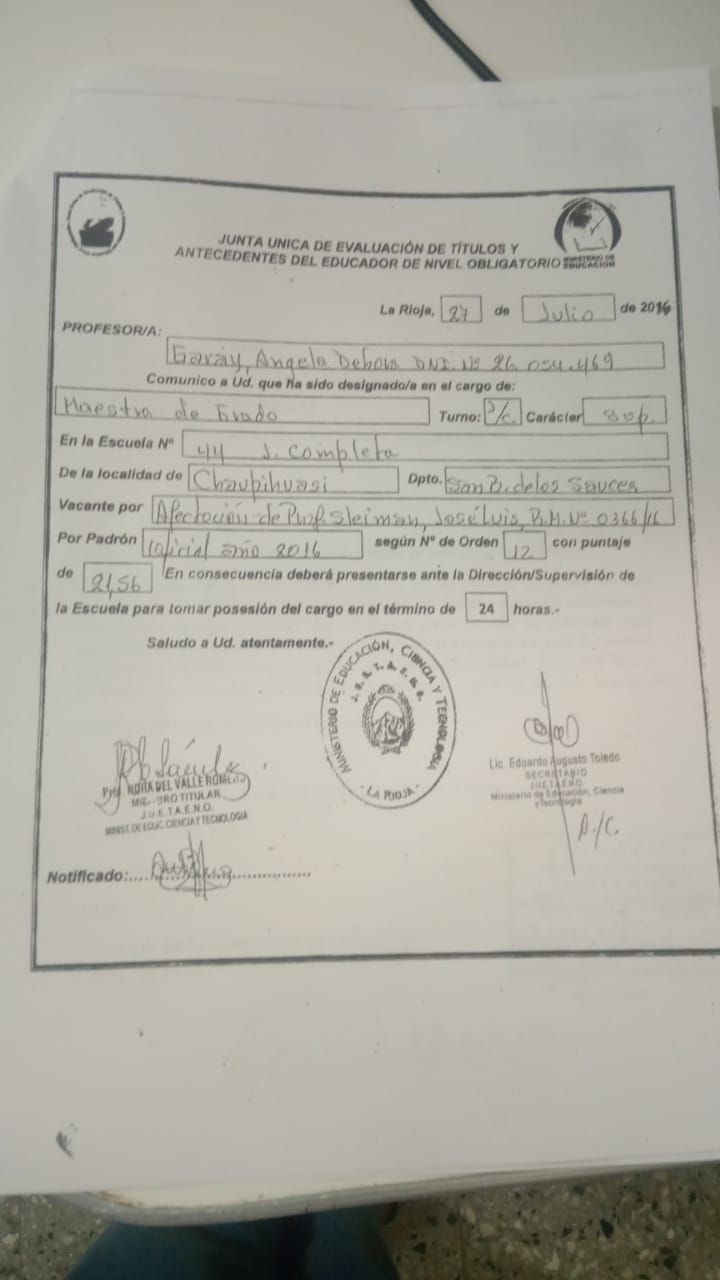 JUNTA UNICA DE EVALUACIÓN DE TÍTULOS Y
ANTECEDENTES DEL EDUCADOR DE NIVEL OBLIGATORIO
MINISTERIO DE EDUCACIÓN
La Rioja, 27 de Julio de 2016
PROFESOR/A:
Garay, Angela Debora DNI. Nº 26.054.469
Comunico a Ud. que ha sido designado/a en el cargo de:
Maestra de Grado Turno: J/c. Carácter Sup.
En la Escuela Nº 44 J. Completa
De la localidad de Chaupihuasi Dpto. San B. de los Sauces
Vacante por Afectación de Prof. Sleiman, José Luis, R.M. Nº 0366/16
Por Padrón Oficial año 2016 según Nº de Orden 12 con puntaje
de 21,56 En consecuencia deberá presentarse ante la Dirección/Supervisión de
la Escuela para tomar posesión del cargo en el término de 24 horas.-
Saludo a Ud. atentamente.-
MINISTERIO DE EDUCACIÓN, CIENCIA Y TECNOLOGIA
J. U. E. T. A. E. N. O.
- LA RIOJA -
Prof. NORA DEL VALLE ROMERO
MIEMBRO TITULAR
J.U.E.T.A.E.N.O.
MINIST. DE EDUC. CIENCIA Y TECNOLOGIA
Lic. Eduardo Augusto Toledo
SECRETARIO
JUETAENO
Ministerio de Educación, Ciencia
y Tecnología
A/C.
Notificado: